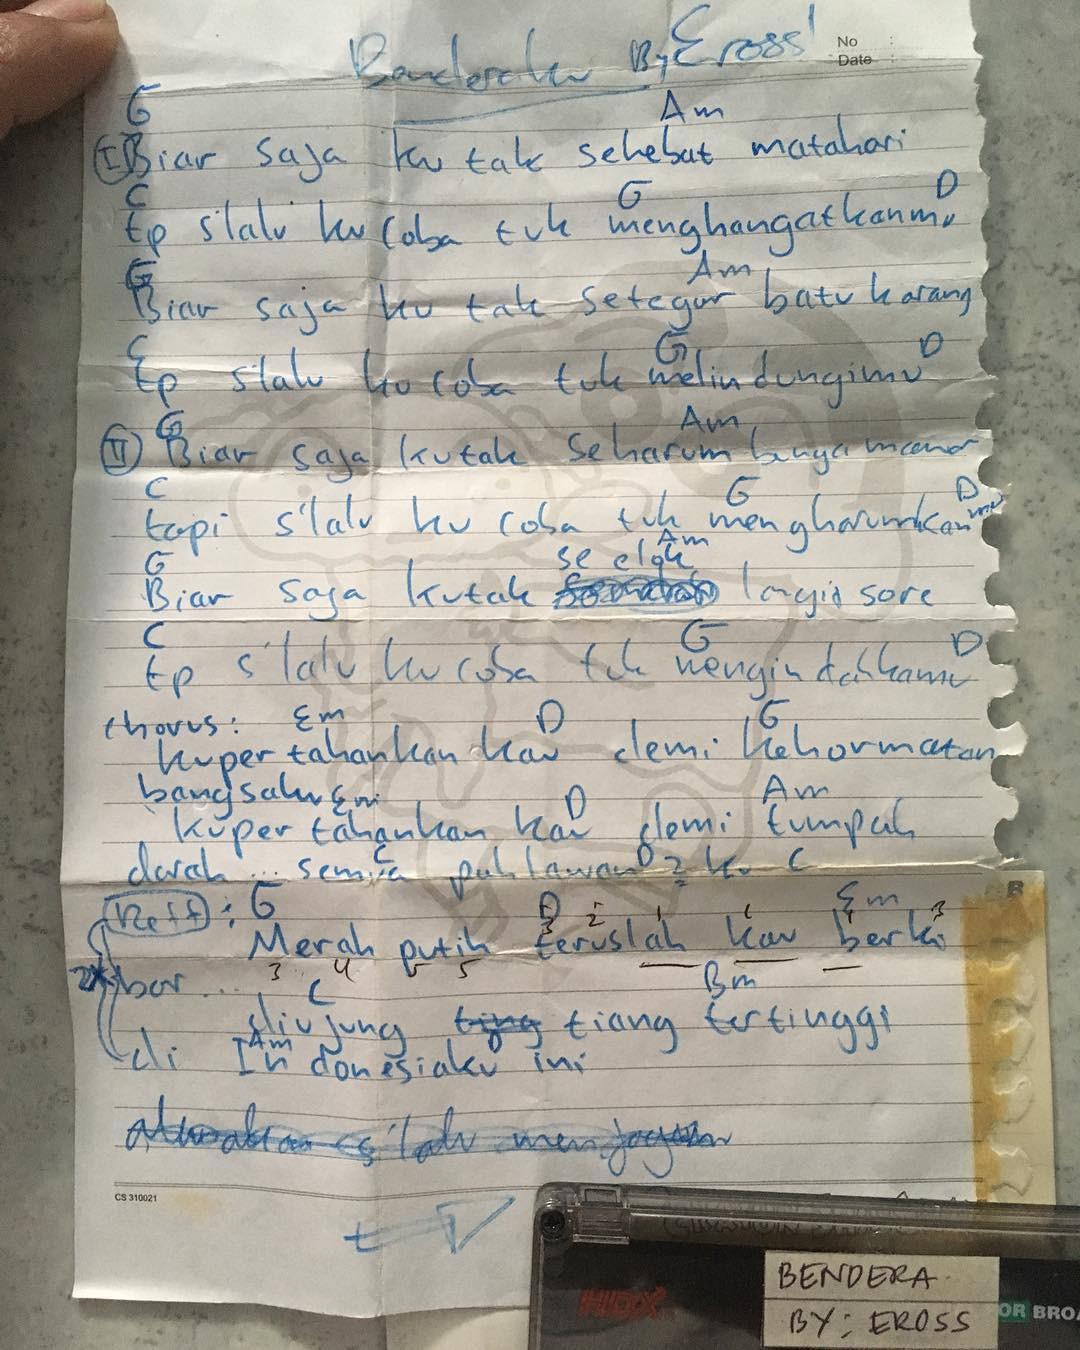 Benderaku By Eross'
No :
Date :
G Am
I Biar saja ku tak sehebat matahari
C G D
tp s'lalu ku coba tuk menghangatkanmu
G Am
Biar saja ku tak setegar batu karang
C G D
tp s'lalu ku coba tuk melindungimu
G Am
II Biar saja kutak seharum bunga mawar
C G D
tapi s'lalu ku coba tuk mengharumkanmu
G se elok Am
Biar saja kutak langit sore
C G D
tp s'lalu ku coba tuk mengindahkanmu
chorus: Em D G
kupertahankan kau demi kehormatan
bangsaku Em D Am
kupertahankan kau demi tumpah
darah... semua C pahlawan D 2 ku C
Reff : G D Em
3 2 1 1 1 3
Merah putih teruslah kau berki
2x bar ... 3 4 5 5
C Bm
diujung tiang tertinggi
Am
di Indonesiaku ini
s'lalu menjaga
CS 310021
BENDERA
BY: EROSS
OR BROA